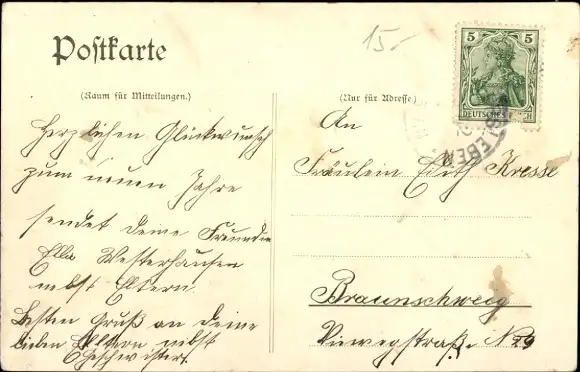 Postkarte
(Raum für Mitteilungen.)
Herzlichen Glückwunsch
zum neuen Jahre
sendet deine Freundin
Ella Westerhausen
nebst Eltern.
Besten Gruß an deine
lieben Eltern nebst
Geschwister.
15-
5 5
DEUTSCHES REICH
(Nur für Adresse.)
An
Fräulein Edith Kresse
Braunschweig
Viewegstraße No 29